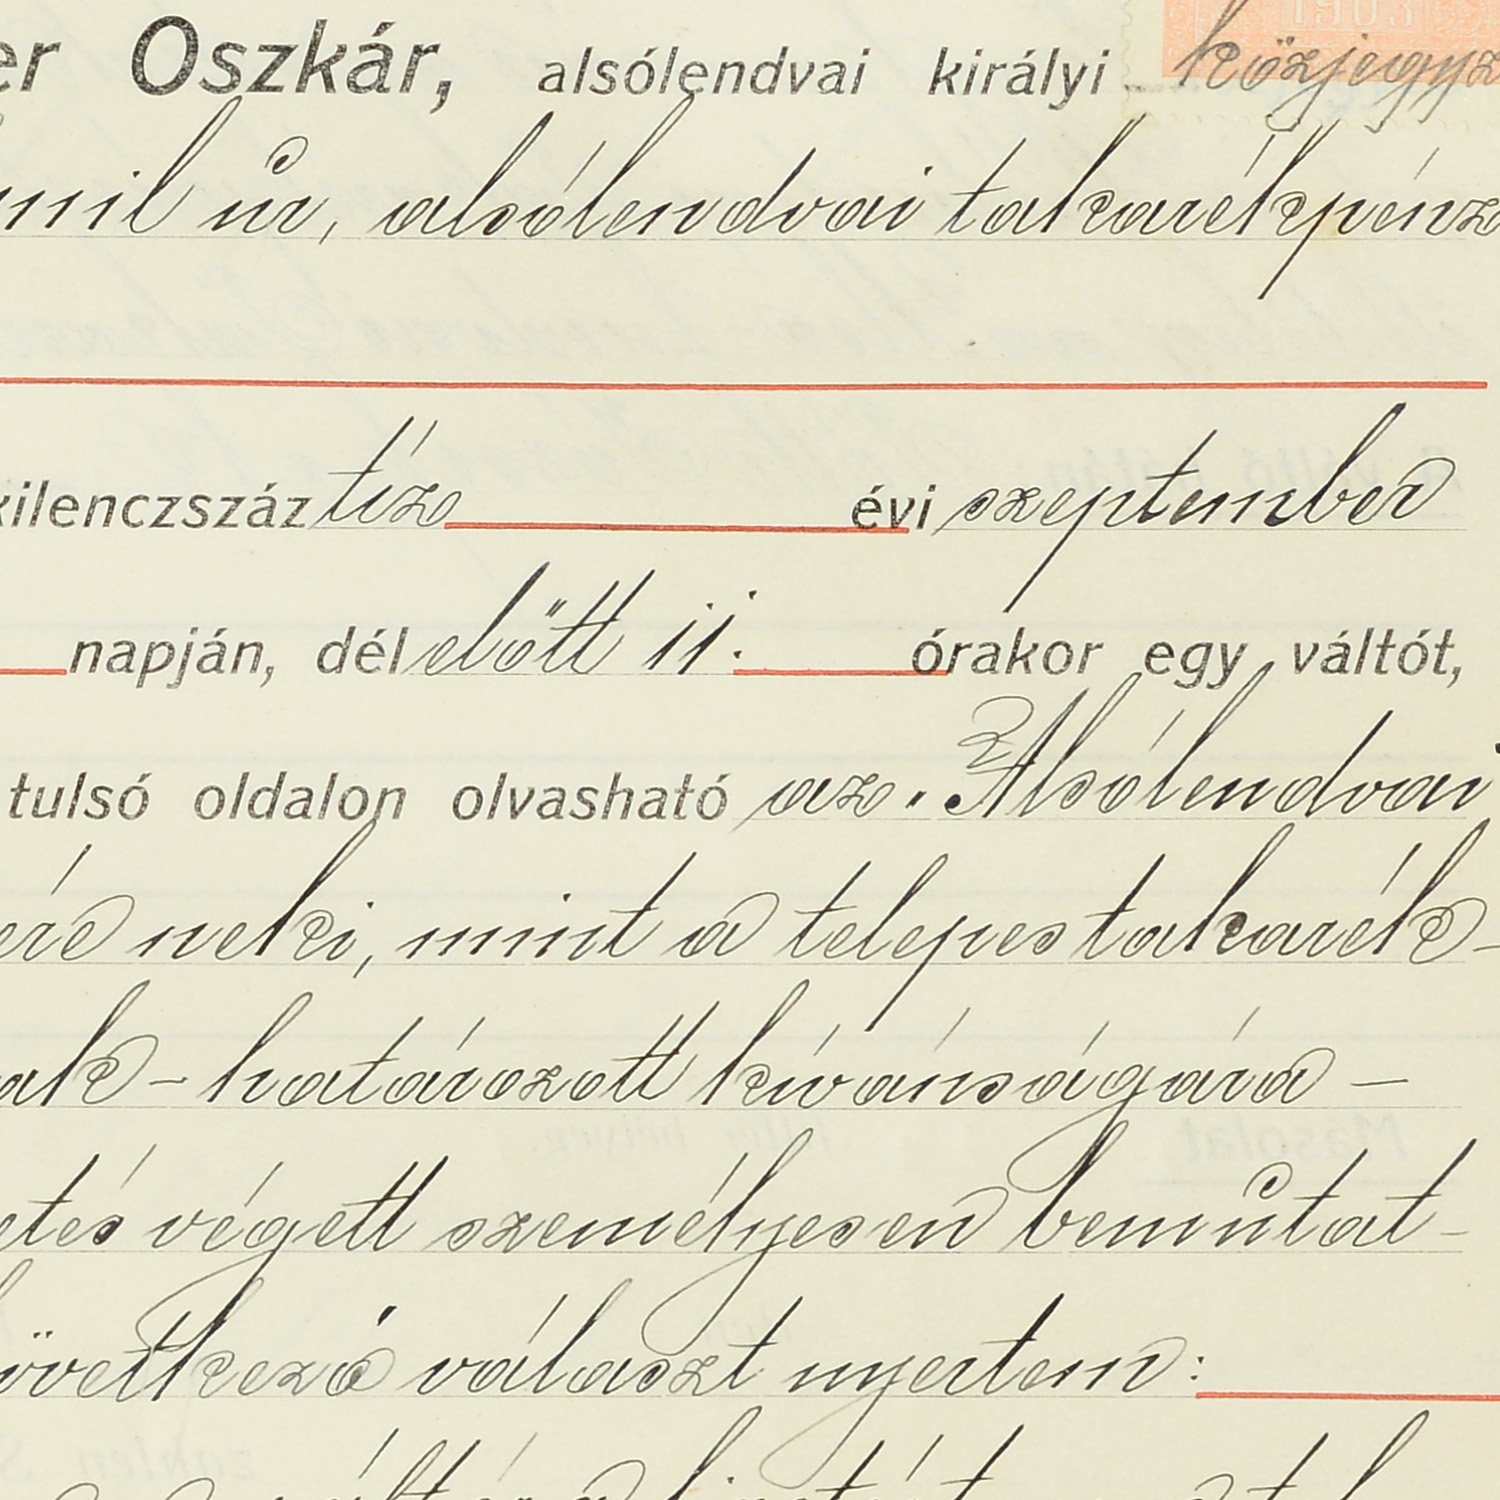 er Oszkár, alsólendvai királyi közjegyz
mil úr, alsólendvai takarékpénz
kilenczszáz tíz évi szeptember
napján, dél előtt 11. órakor egy váltót,
tulsó oldalon olvasható az „Alsólendvai
ére neki, mint a telepes takarék-
ak – határozott kívánságára –
etés végett személyesen bemutat-
övetkező választ nyertem: